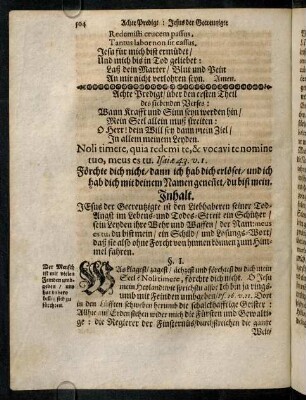 504 Achte Predigt: Jesus der Gecreutzigte
Redemisti crucem passus,
Tantus labor non sit cassus.
Jesu für mich bist ermüdet/
Und mich bis in Tod geliebet:
Laß dein Marter/ Blut und Pein
An mir nicht verlohren seyn. Amen.
Achte Predigt/ über den ersten Theil
des siebenden Verses:
Wann Krafft und Sinn seyn werden hin/
Mein Seel allein muß streiten:
O Herr: dein Will sey dann mein Ziel/
In allem meinem Leyden.
Noli timere, quia redemi te, & vocavi te nomine
tuo, meus es tu. Isaiæ 43. v. 1.
Förchte dich nicht/ dann ich hab dich erlöset/ und ich
hab dich mit deinem Namen genennet, du bist mein.
Inhalt.
JEsus der Gecreutzigte ist den Liebhabern seiner Tod-
Angst im Lebens- und Todes-Streit ein Schützer/
sein Leyden ihre Wehr und Waffen/ der Nam: meus
es tu, du bist mein/ ein Schild/ und Losungs-Wort/
daß sie also ohne Forcht von hinnen können zum Him-
mel fahren.
§. 1.
Der Mensch
ist mit vielen
Feinden um-
geben/ und
hat sich
zu
förchten.
WAs klagest/ zagest/ ächzest und förchtest du dich mein
Seel? Noli timere, förchte dich nicht. O Jesu
mein Heyland wie sprichst also! Ich bin ja rings
umb mit Feinden umbgeben/ Dort
in den Lüfften schweben herumb die schalckhafftige Geister:
Allhie auf Erden stehen wider mich die Fürsten und Gewalti-
ge: die Regierer der Finsternus/ durchstreichen die gantze
Welt/